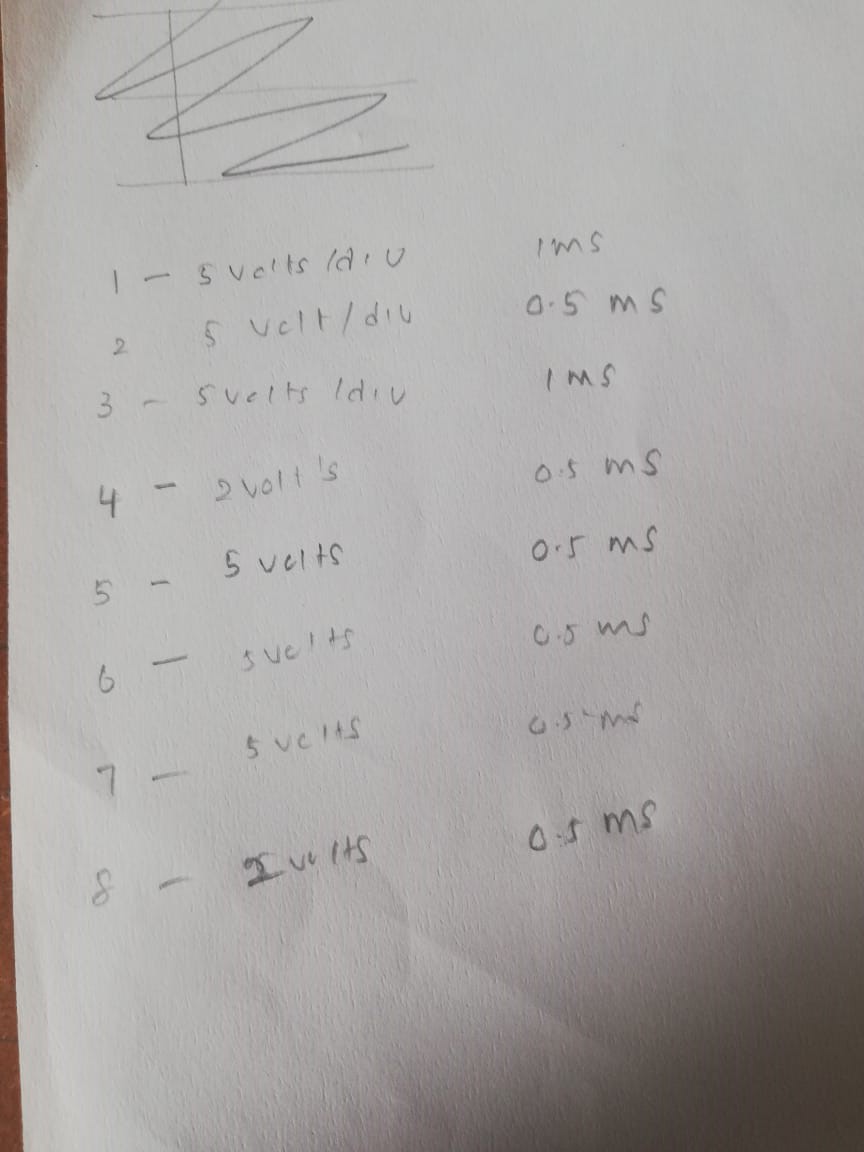 1 - 5 volts/div 1ms
2 5 volt/div 0.5 ms
3 - 5 volts/div 1ms
4 - 2 volt's 0.5 ms
5 - 5 volts 0.5 ms
6 - 5 volts 0.5 ms
7 - 5 volts 0.5 ms
8 - volts 0.5 ms